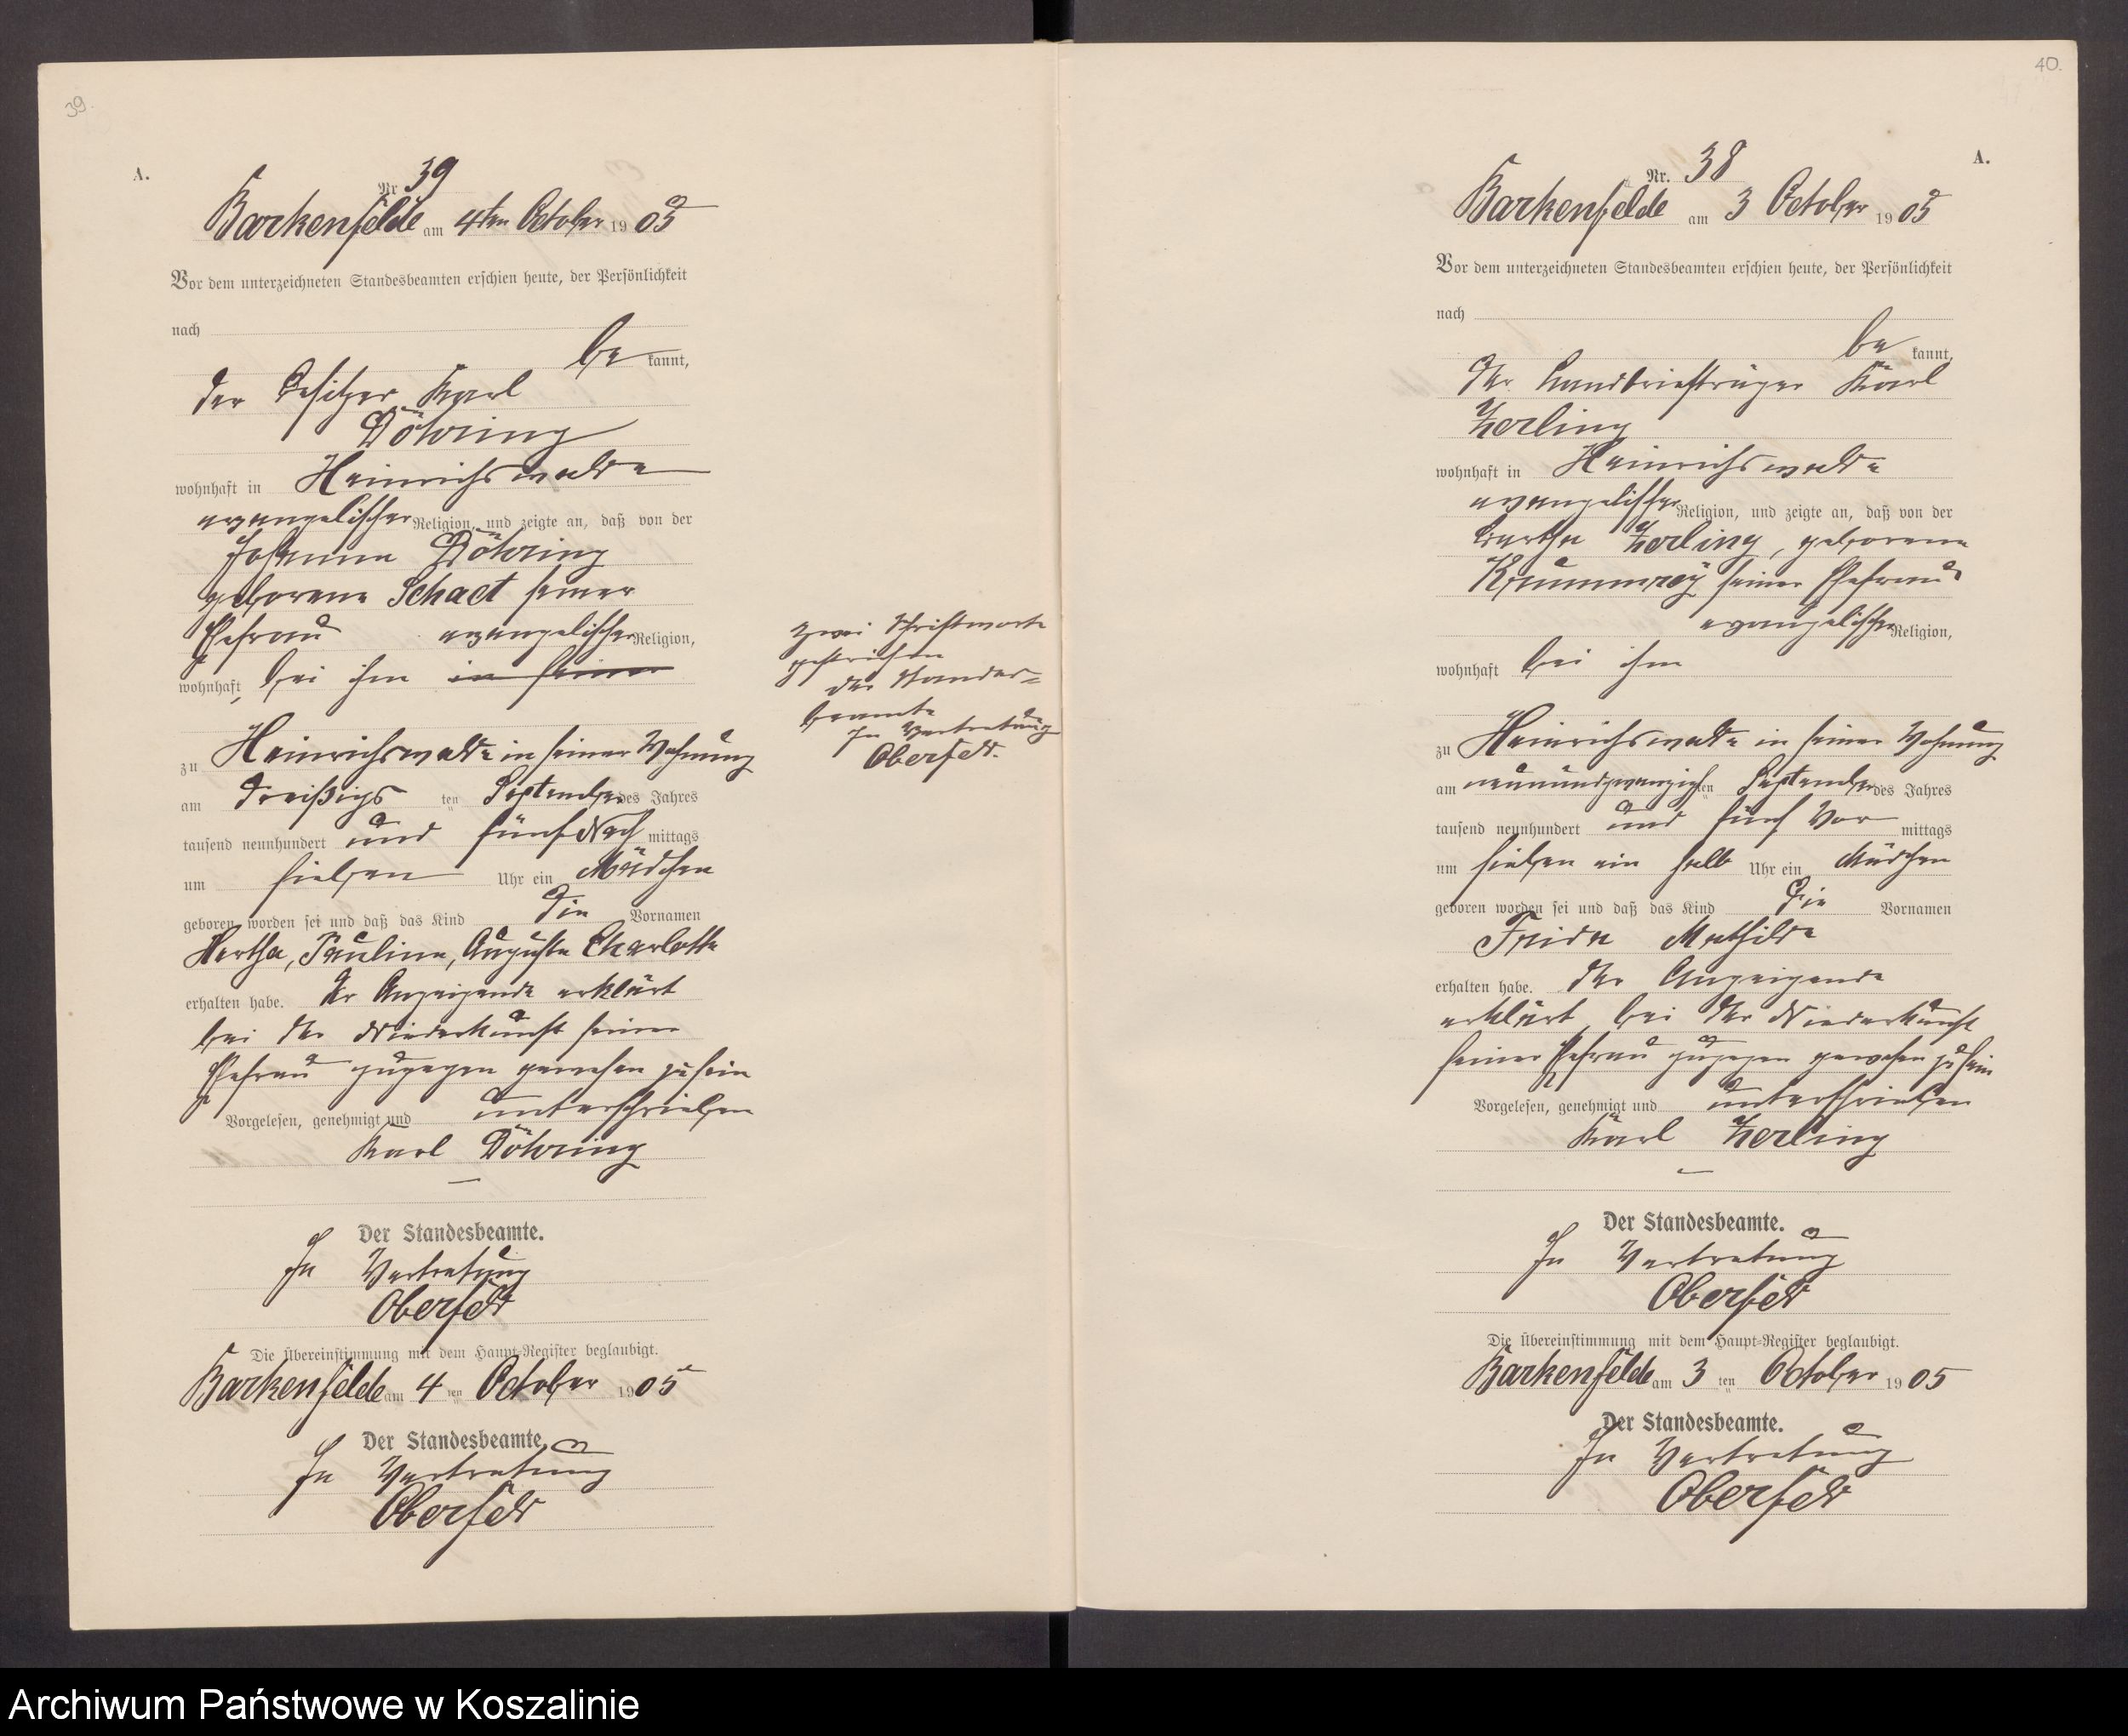 39.
A.
Nr 39
Barkenfelde am 4ten October 1905
Vor dem unterzeichneten Standesbeamten erschien heute, der Persönlichkeit
nach
be kannt,
der Besitzer Karl
Döhring
wohnhaft in Heinrichswalde
evangelischer Religion, und zeigte an, daß von der
Johanna Döhring
geborene Schact seiner
Ehefrau evangelischer Religion,
wohnhaft, bei ihm in seiner
zu Heinrichswalde in seiner Wohnung
am dreißigs ten September des Jahres
tausend neunhundert und fünf Nach mittags
um sieben Uhr ein Mädchen
geboren worden sei und daß das Kind die Vornamen
Hertha, Pauline, Auguste Charlotte
erhalten habe. Der Anzeigende erklärt
bei der Niederkunft seiner
Ehefrau zugegen gewesen zu sein
Vorgelesen, genehmigt und unterschrieben
Karl Döhring
Der Standesbeamte.
In Vertretung
Oberfeld
Die Übereinstimmung mit dem Haupt-Register beglaubigt.
Barkenfelde am 4 ten October 1905
Der Standesbeamte.
In Vertretung
Oberfeld
zwei Schriftworte
gestrichen
der Standes=
beamte
In Vertretung
Oberfeld.
40.
A.
Nr. 38
Barkenfelde am 3 October 1905
Vor dem unterzeichneten Standesbeamten erschien heute, der Persönlichkeit
nach
be kannt,
der Landbriefträger Karl
Zerling
wohnhaft in Heinrichswalde
evangelischer Religion, und zeigte an, daß von der
Bertha Zerling, geborene
Krummrey seiner Ehefrau
evangelischer Religion,
wohnhaft bei ihm
zu Heinrichswalde in seiner Wohnung
am neunundzwanzigsten September des Jahres
tausend neunhundert und fünf Vor mittags
um sieben ein halb Uhr ein Mädchen
geboren worden sei und daß das Kind die Vornamen
Frida Mathilde
erhalten habe. Der Anzeigende
erklärt bei der Niederkunft
seiner Ehefrau zugegen gewesen zu sein
Vorgelesen, genehmigt und unterschrieben
Karl Zerling
Der Standesbeamte.
In Vertretung
Oberfeld
Die Übereinstimmung mit dem Haupt-Register beglaubigt.
Barkenfelde am 3 ten October 1905
Der Standesbeamte.
In Vertretung
Oberfeld
Archiwum Państwowe w Koszalinie